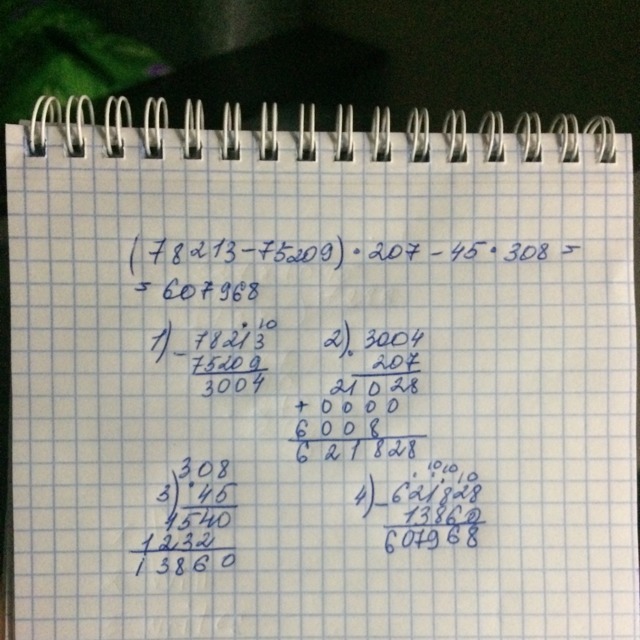 (78213-75209)·207-45·308=
=607968
1) - 78213
75209
3004
2) · 3004
207
21028
+ 0000
6008
621828
3) · 308
45
1540
1232
13860
4) - 621828
13860
607968